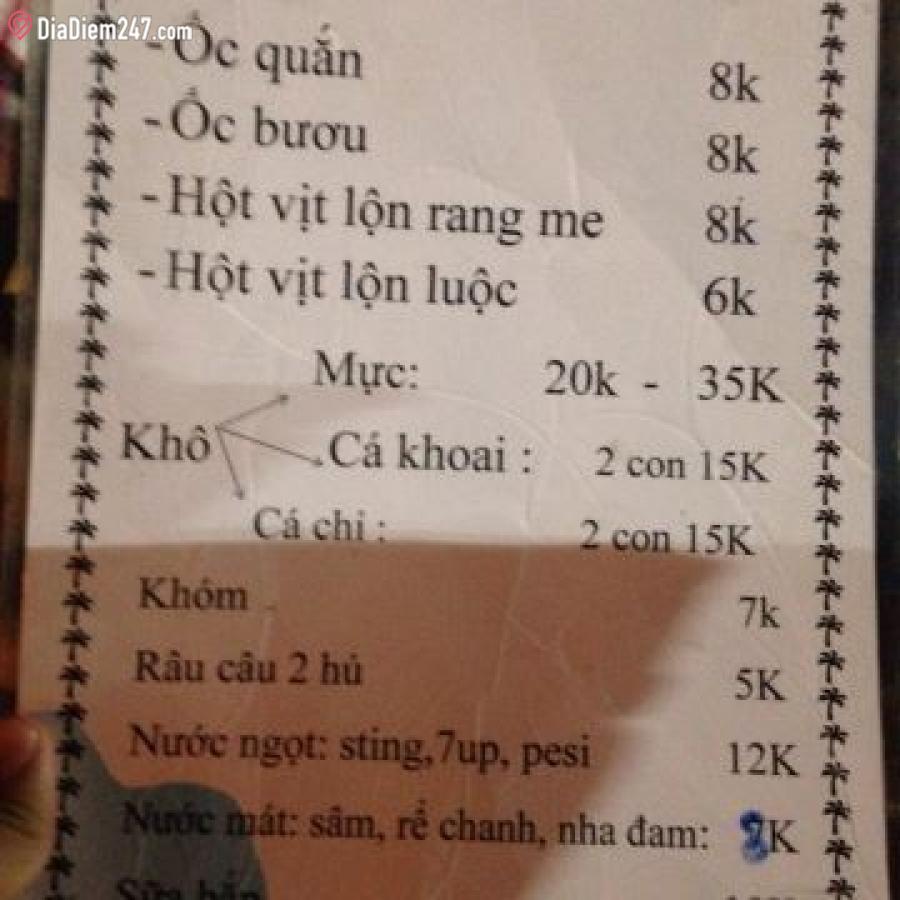 DiaDiem247.com
- Ốc quắn 8k
- Ốc bươu 8k
- Hột vịt lộn rang me 8k
- Hột vịt lộn luộc 6k
Mực: 20k - 35K
Khô Cá khoai : 2 con 15K
Cá chỉ : 2 con 15K
Khóm 7k
Râu câu 2 hủ 5K
Nước ngọt: sting,7up, pesi 12K
Nước mát: sâm, rể chanh, nha đam: K
Sữa